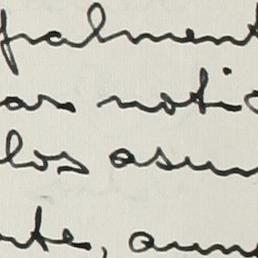 fralment
ar notic
los asun
nte, aun